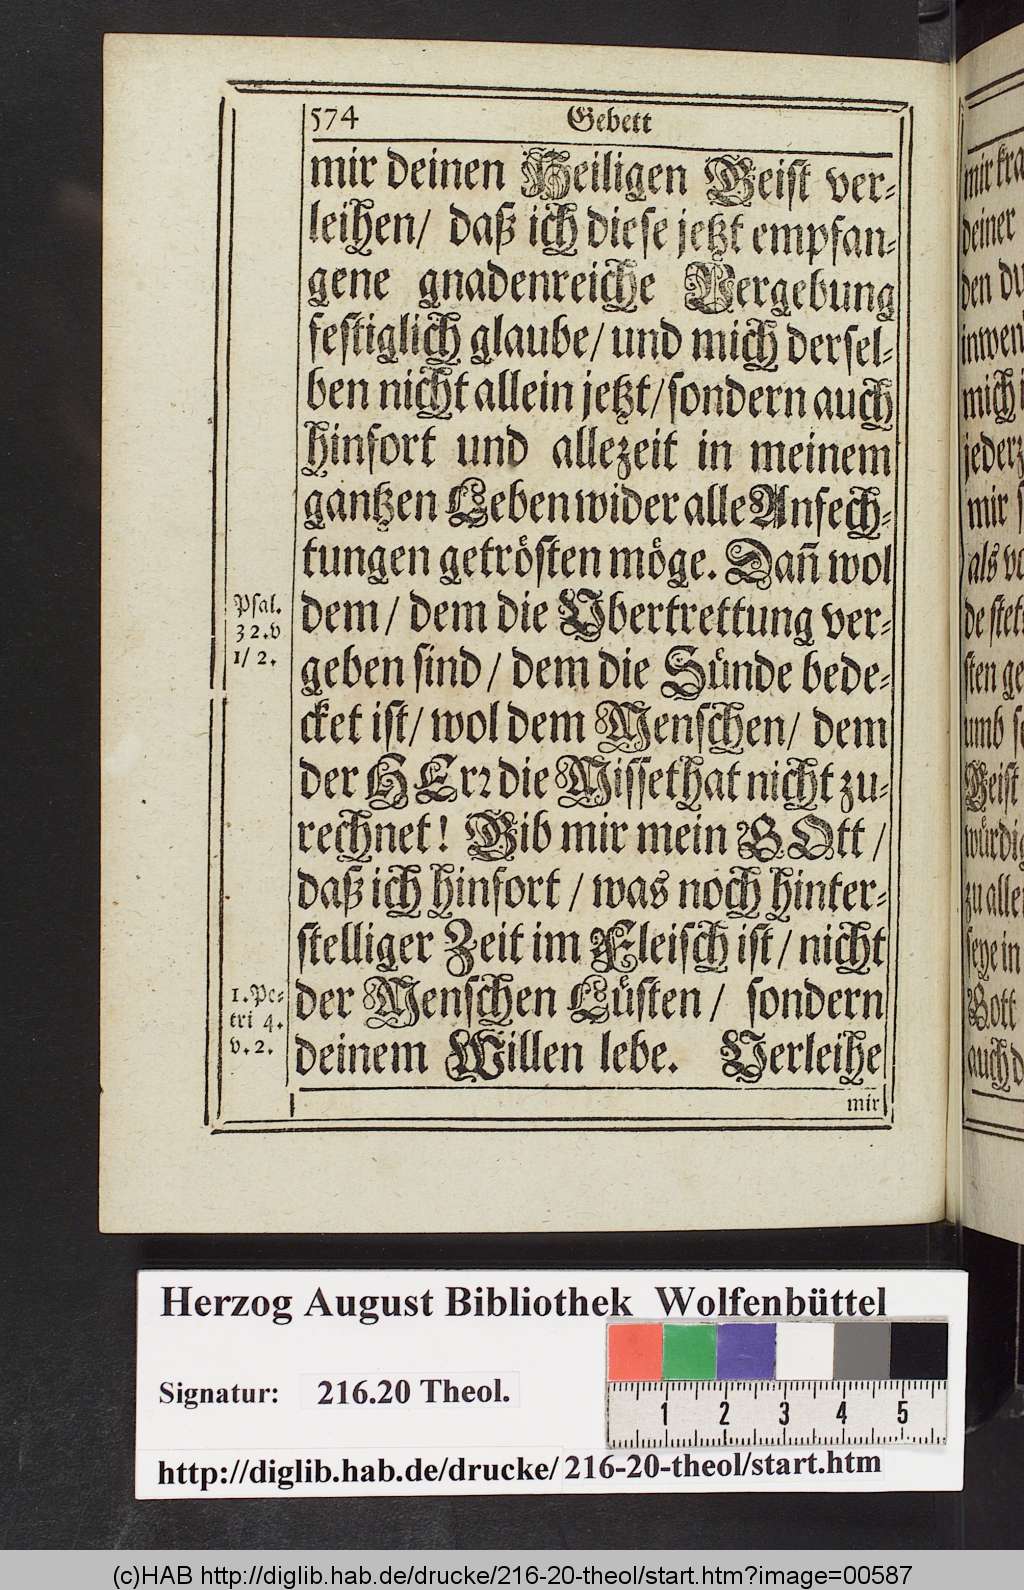 574 Gebett
mir deinen Heiligen Geist ver-
leihen/ daß ich diese jetzt empfan-
gene gnadenreiche Vergebung
festiglich glaube/ und mich dersel-
ben nicht allein jetzt/ sondern auch
hinfort und allezeit in meinem
gantzen Leben wider alle Anfech-
tungen getrösten möge. Dañ wol
dem/ dem die Ubertrettung ver-
geben sind/ dem die Sünde bede-
cket ist/ wol dem Menschen/ dem
der HErr die Missethat nicht zu-
rechnet! Gib mir mein GOtt/
daß ich hinfort/ was noch hinter-
stelliger Zeit im Fleisch ist/ nicht
der Menschen Lüsten/ sondern
deinem Willen lebe. Verleihe
mir
Psal.
32.v
1/2.
1.Pe-
tri 4.
v.2.
mir kra
deiner
den du
inwen
mich i
jederz
mir s
als ve
de stet
sten ge
umb se
Geist
würdig
zu aller
seye in
Gott
auch d
Herzog August Bibliothek Wolfenbüttel
Signatur: 216.20 Theol.
1 2 3 4 5
http://diglib.hab.de/drucke/216-20-theol/start.htm
(c)HAB http://diglib.hab.de/drucke/216-20-theol/start.htm?image=00587